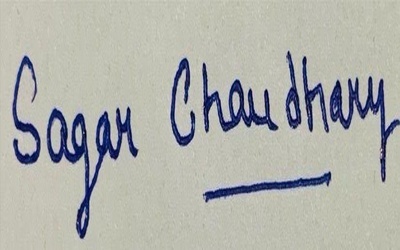 Sagar Chaudhary